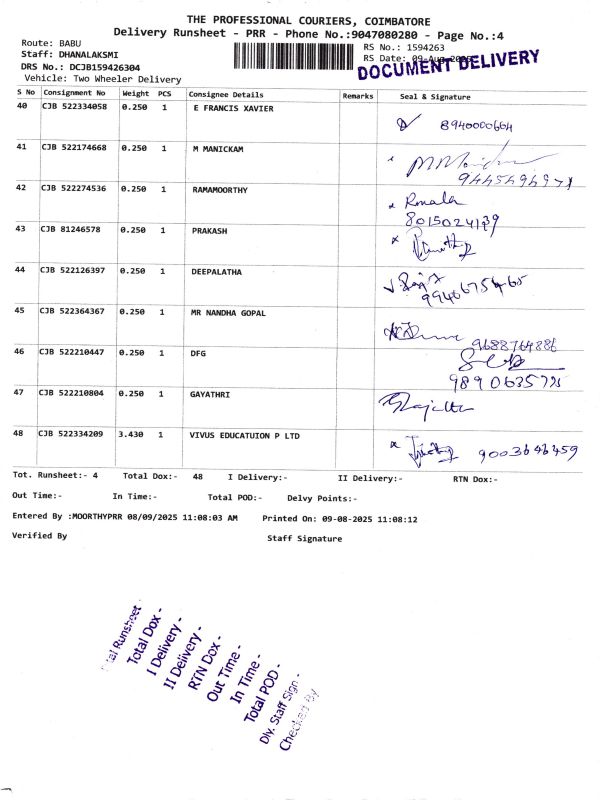 THE PROFESSIONAL COURIERS, COIMBATORE
Delivery Runsheet - PRR - Phone No.:9047080280 - Page No.:4
Route: BABU
Staff: DHANALAKSMI
DRS No.: DCJB159426304
Vehicle: Two Wheeler Delivery
RS No.: 1594263
RS Date: 09-Aug-2025
DOCUMENT DELIVERY
S No Consignment No Weight PCS Consignee Details Remarks Seal & Signature
40 CJB 522334058 0.250 1 E FRANCIS XAVIER
8940000604
41 CJB 522174668 0.250 1 M MANICKAM
42 CJB 522274536 0.250 1 RAMAMOORTHY
43 CJB 81246578 0.250 1 PRAKASH
44 CJB 522126397 0.250 1 DEEPALATHA
45 CJB 522364367 0.250 1 MR NANDHA GOPAL
9688764886
46 CJB 522210447 0.250 1 DFG
47 CJB 522210804 0.250 1 GAYATHRI
48 CJB 522334209 3.430 1 VIVUS EDUCATUION P LTD
9003646459
Tot. Runsheet:- 4 Total Dox:- 48 I Delivery:- II Delivery:- RTN Dox:-
Out Time:- In Time:- Total POD:- Delvy Points:-
Entered By :MOORTHYPRR 08/09/2025 11:08:03 AM Printed On: 09-08-2025 11:08:12
Verified By Staff Signature
Runsheet -
Total Dox -
I Delivery -
II Delivery -
RTN Dox -
Out Time -
In Time -
Total POD -
Dlv. Staff Sign -
Checked By